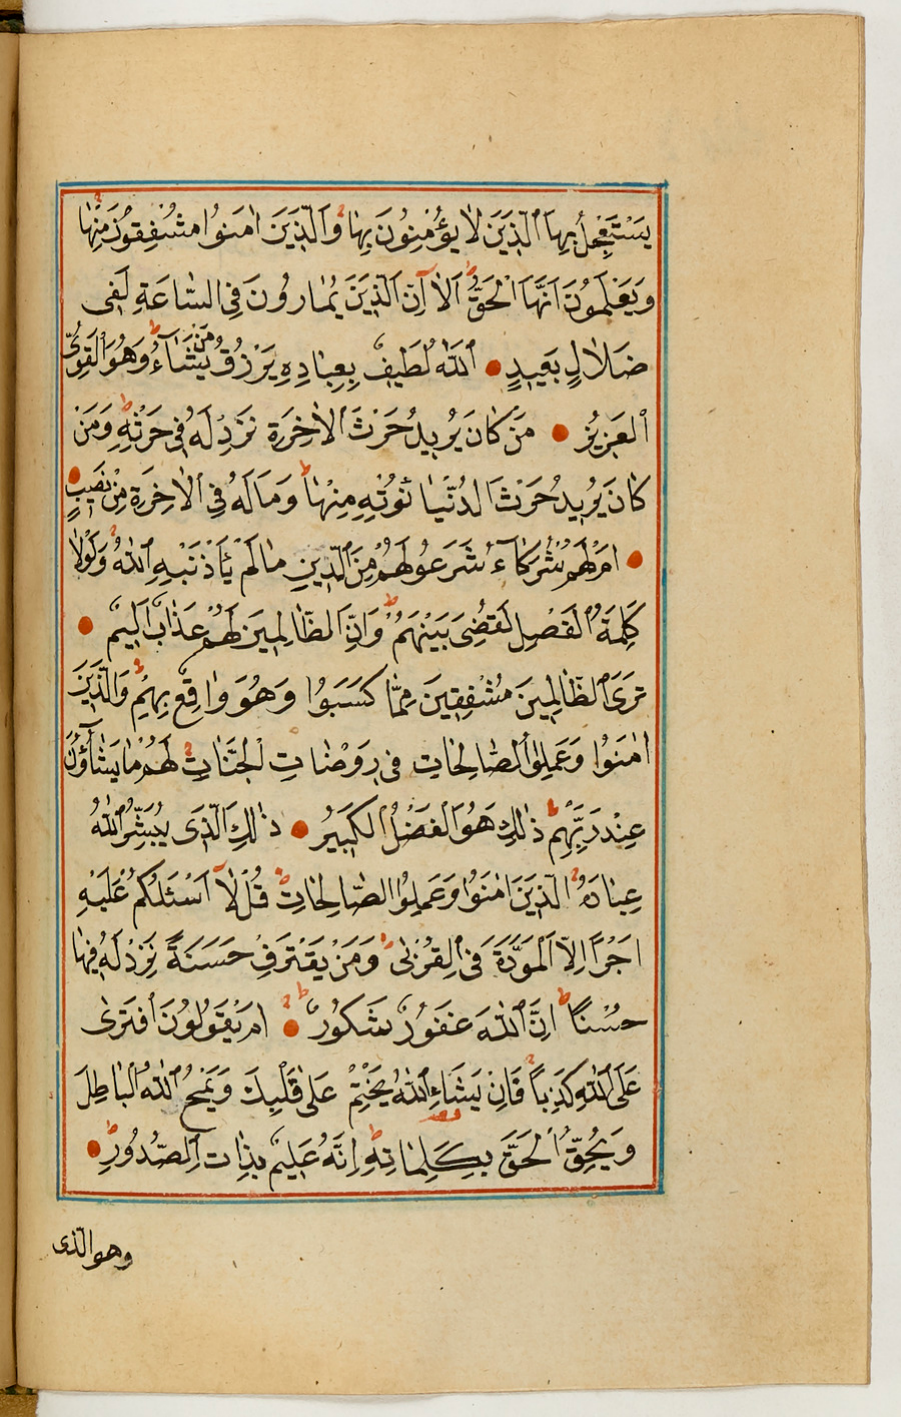 يَسْتَعْجِلُ بِهَا ٱلَّذِينَ لَا يُؤْمِنُونَ بِهَا وَٱلَّذِينَ اٰمَنُوا مُشْفِقُونَ مِنْهَا
وَيَعْلَمُونَ اَنَّهَا الْحَقُّ اَلَا اِنَّ الَّذِينَ يُمَارُونَ فِي السَّاعَةِ لَفِي
ضَلَالٍ بَعِيدٍ اَللّٰهُ لَطِيفٌ بِعِبَادِهِ يَرْزُقُ مَنْ يَشَاءُ وَهُوَ الْقَوِيُّ
ٱلْعَزِيزُ مَنْ كَانَ يُرِيدُ حَرْثَ ٱلْاٰخِرَةِ نَزِدْ لَهُ فِي حَرْثِهِ وَمَنْ
كَانَ يُرِيدُ حَرْثَ الدُّنْيَا نُؤْتِهِ مِنْهَا وَمَا لَهُ فِي ٱلْاٰخِرَةِ مِنْ نَصِيبٍ
اَمْ لَهُمْ شُرَكَاءُ شَرَعُوا لَهُمْ مِنَ الدِّينِ مَا لَمْ يَأْذَنْ بِهِ ٱللّٰهُ وَلَوْلَا
كَلِمَةُ ٱلْفَصْلِ لَقُضِيَ بَيْنَهُمْ وَاِنَّ الظَّالِمِينَ لَهُمْ عَذَابٌ اَلِيمٌ
تَرَى ٱلظَّالِمِينَ مُشْفِقِينَ مِمَّا كَسَبُوا وَهُوَ وَاقِعٌ بِهِمْ وَالَّذِينَ
اٰمَنُوا وَعَمِلُوا ٱلصَّالِحَاتِ فِي رَوْضَاتِ الْجَنَّاتِ لَهُمْ مَا يَشَاؤُنَ
عِنْدَ رَبِّهِمْ ذٰلِكَ هُوَ الْفَضْلُ الْكَبِيرُ ذٰلِكَ الَّذِي يُبَشِّرُ ٱللّٰهُ
عِبَادَهُ الَّذِينَ اٰمَنُوا وَعَمِلُوا الصَّالِحَاتِ قُلْ لَا اَسْئَلُكُمْ عَلَيْهِ
اَجْرًا اِلَّا الْمَوَدَّةَ فِي ٱلْقُرْبٰى وَمَنْ يَقْتَرِفْ حَسَنَةً نَزِدْ لَهُ فِيهَا
حُسْنًا اِنَّ ٱللّٰهَ غَفُورٌ شَكُورٌ اَمْ يَقُولُونَ ٱفْتَرٰى
عَلَى ٱللّٰهِ كَذِبًا فَاِنْ يَشَاءِ ٱللّٰهُ يَخْتِمْ عَلٰى قَلْبِكَ وَيَمْحُ ٱللّٰهُ الْبَاطِلَ
وَيُحِقُّ ٱلْحَقَّ بِكَلِمَاتِهِ اِنَّهُ عَلِيمٌ بِذَاتِ ٱلصُّدُورِ
وهو الذى